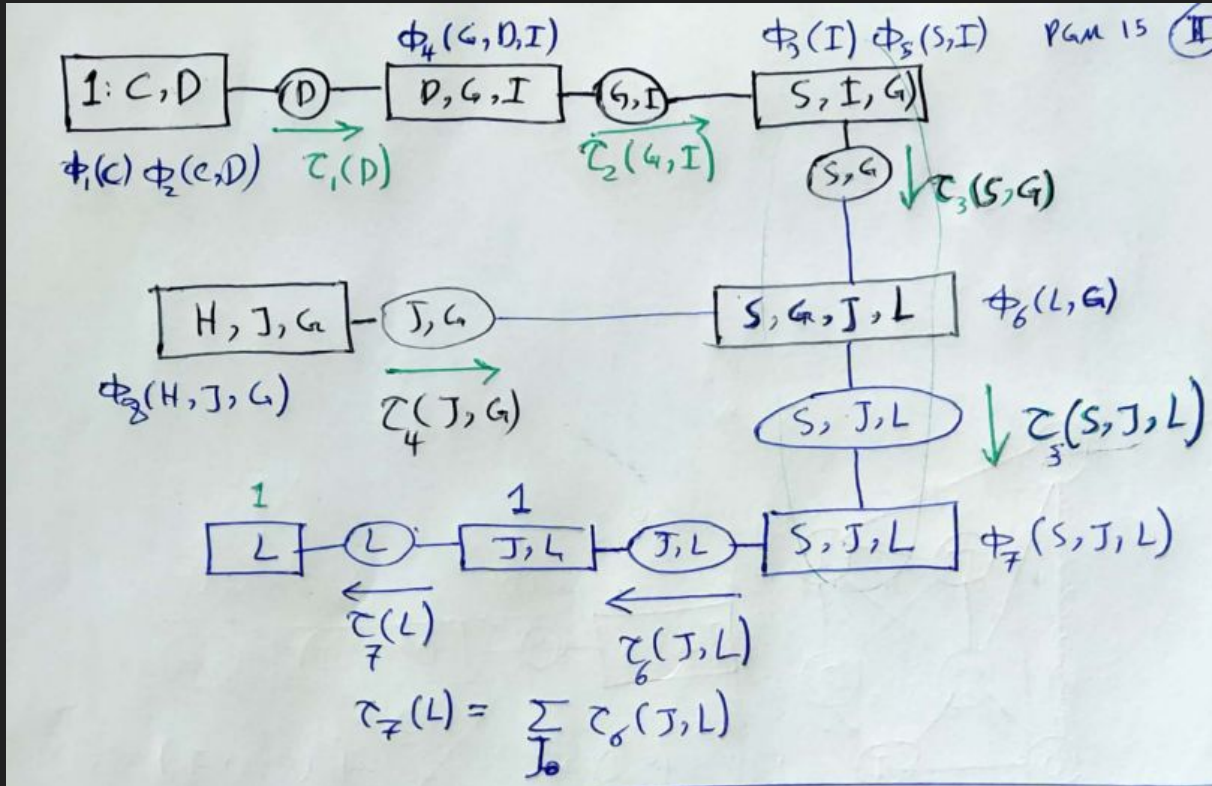 ϕ₄(G,D,I) ϕ₃(I) ϕ₅(S,I) PGM 15 II
1: C,D D D,G,I G,I S,I,G
ϕ₁(C) ϕ₂(C,D) τ₁(D) τ₂(G,I) S,G τ₃(S,G)
H,J,G J,G S,G,J,L ϕ₆(L,G)
ϕ₈(H,J,G) τ₄(J,G) S,J,L τ₅(S,J,L)
1 1
L L J,L J,L S,J,L ϕ₇(S,J,L)
τ₇(L) τ₆(J,L)
τ₇(L) = Σ τ₆(J,L)
J